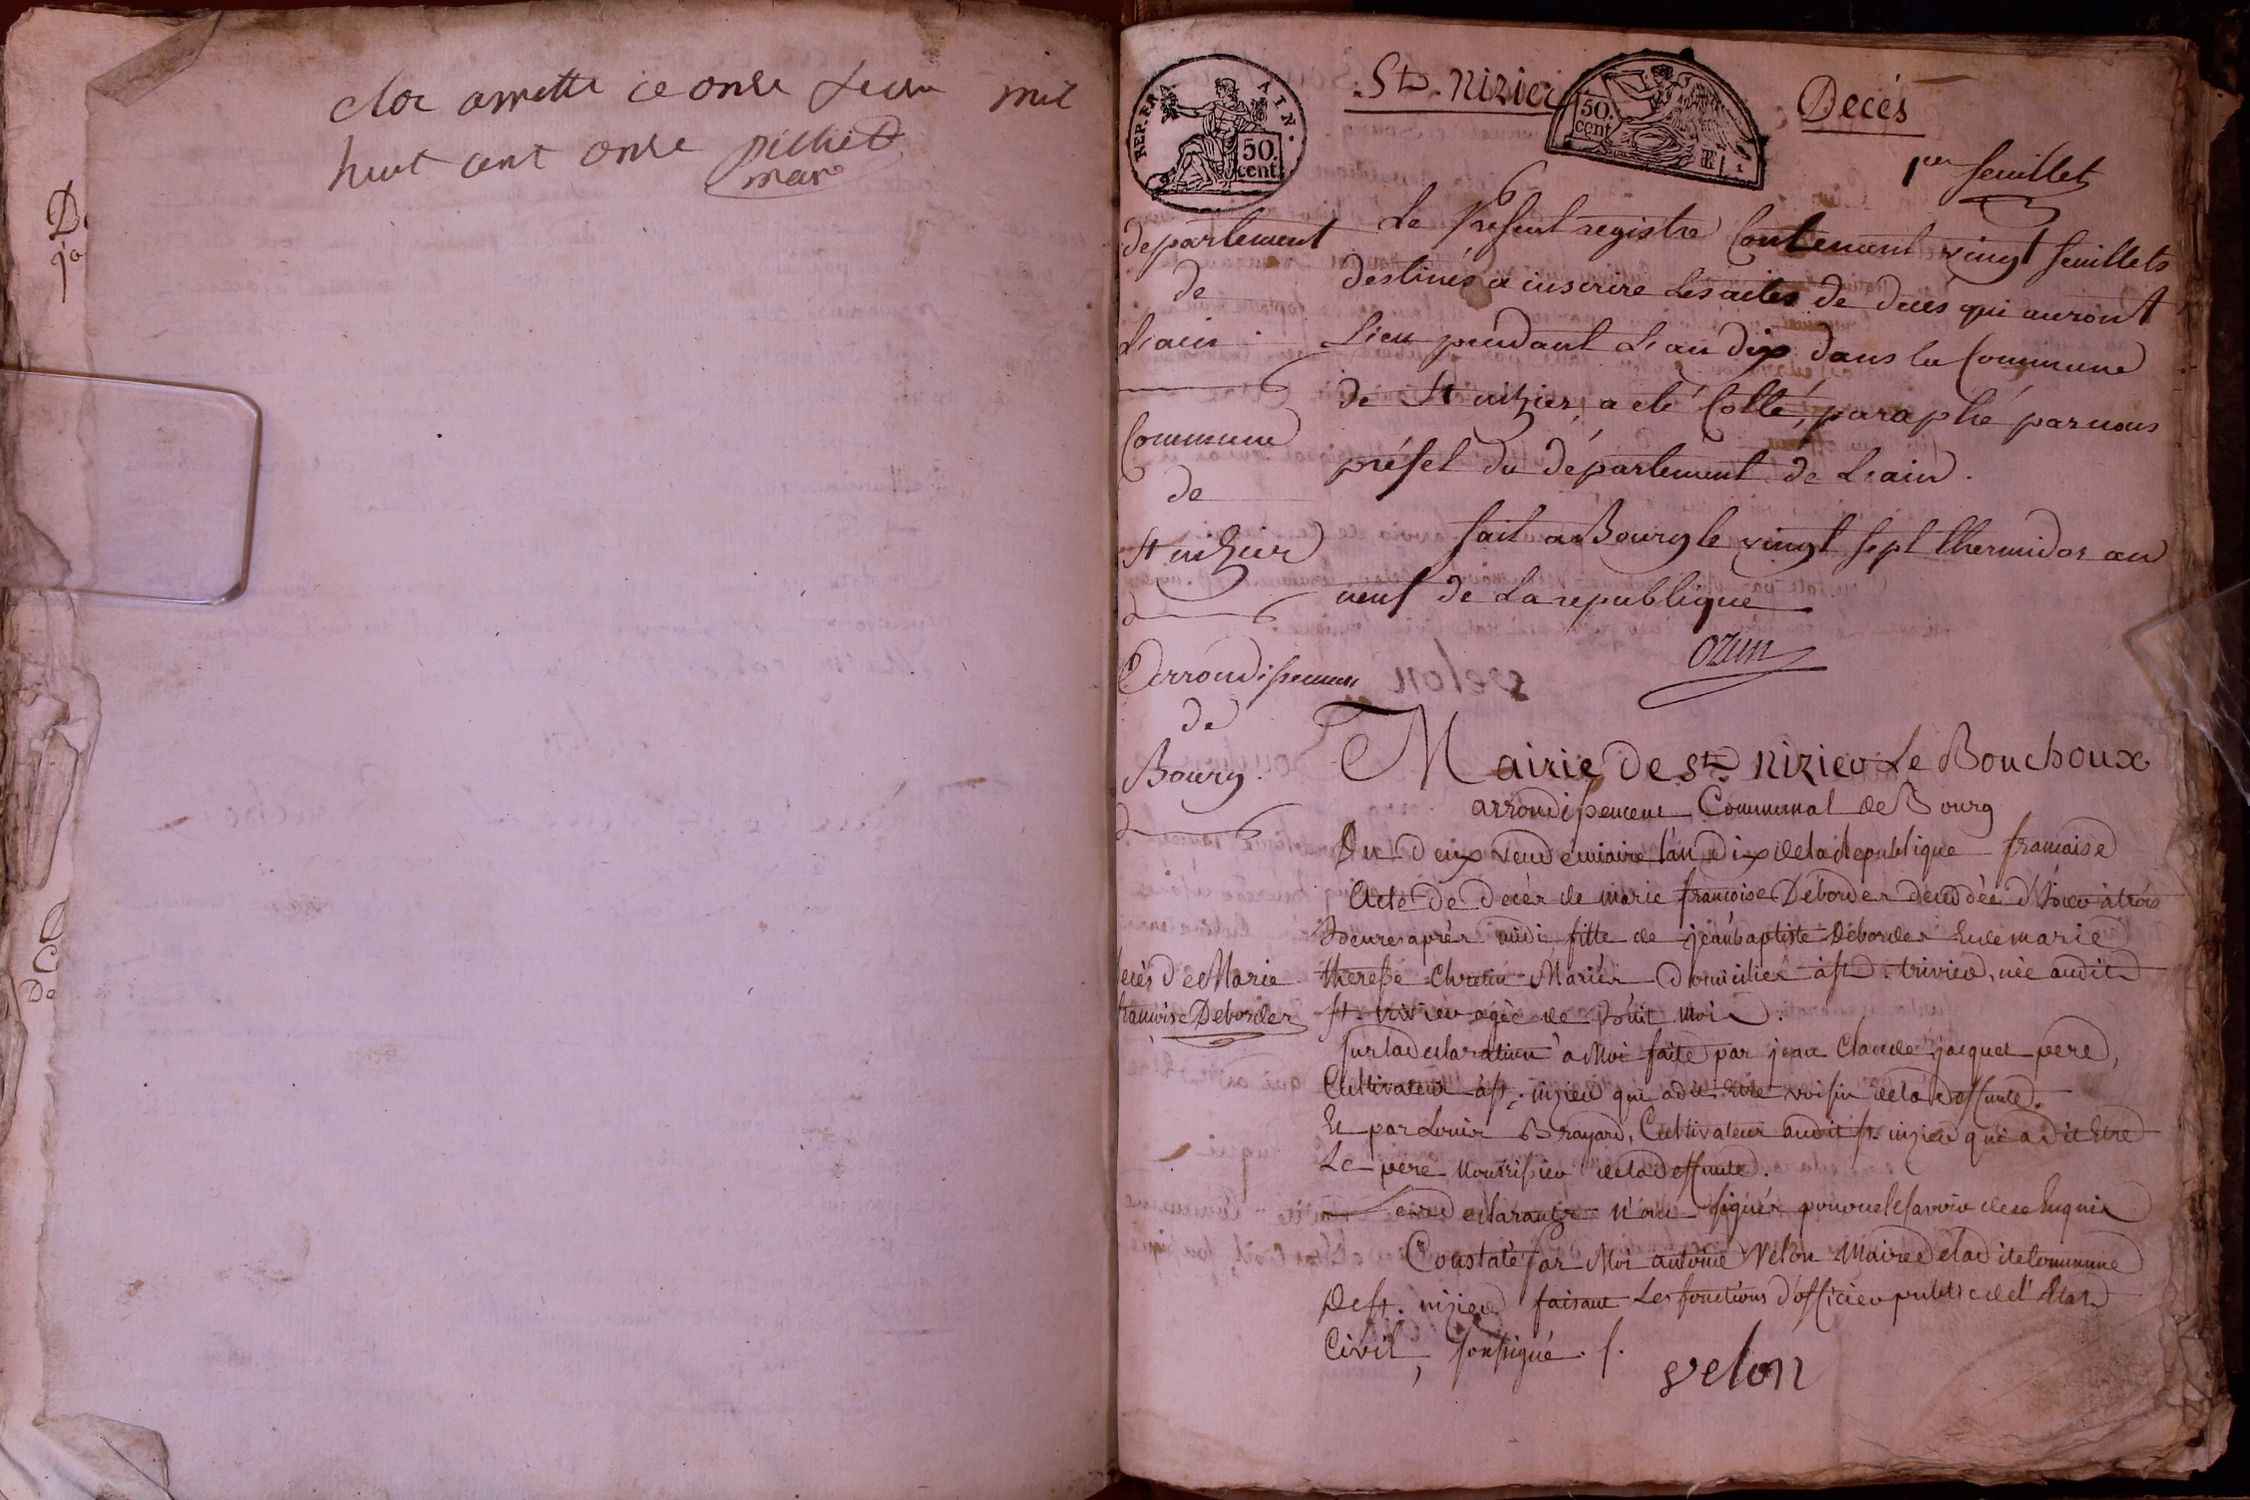 clos arretté ce onse
mil
huit cent onse pilliet
mare
St. Nizier
Decés
REP. FRA
50.
cent.
AIN.
50.
cent
1er feuillet
Le present registre Contenant vingt feuillets
destinés a inscrire les actes de deces qui auront
Lieu pendant L'an dix dans la Commune
de St nizier, a eté Cotté, paraphé par nous
préfet du département de L'ain.
fait a Bourg le vingt sept thermidor an
neuf de La republique
Ozun
departement
de
L'ain
Commune
de
St nizier
Arrondissement
de
Bourg
Mairie de St. Nizier Le Bouchoux
arrondissement Communal de Bourg
Du deux vendemiaire l'an dix de la Republique francaise
Acte de Decés de marie francoise Deborder decedée d'hier à trois
heures aprés midi fille de jean baptiste Deborder Et de marie
therese Chretin Mariés Domiciliés à st. trivier, née audit
st. trivier agée de huit mois.
sur la declaration a Moi faite par jean Claude jacquet pere,
Cultivateur à st. nizier qui a dit Etre voisin de la deffunte.
Et par Louis Brayard, Cultivateur audit st. nizier qui a dit Etre
Le pere Nourrisier de la deffunte.
Les declarants n'ont signés pour ne le savoir de ce Enquis
Constaté par Moi antoine Velon Maire de la dite Commune
De st. nizier faisant Les fonctions d'officier public de l'Etat
Civil, soussigné.
velon
ecès de Marie
francoise Deborder